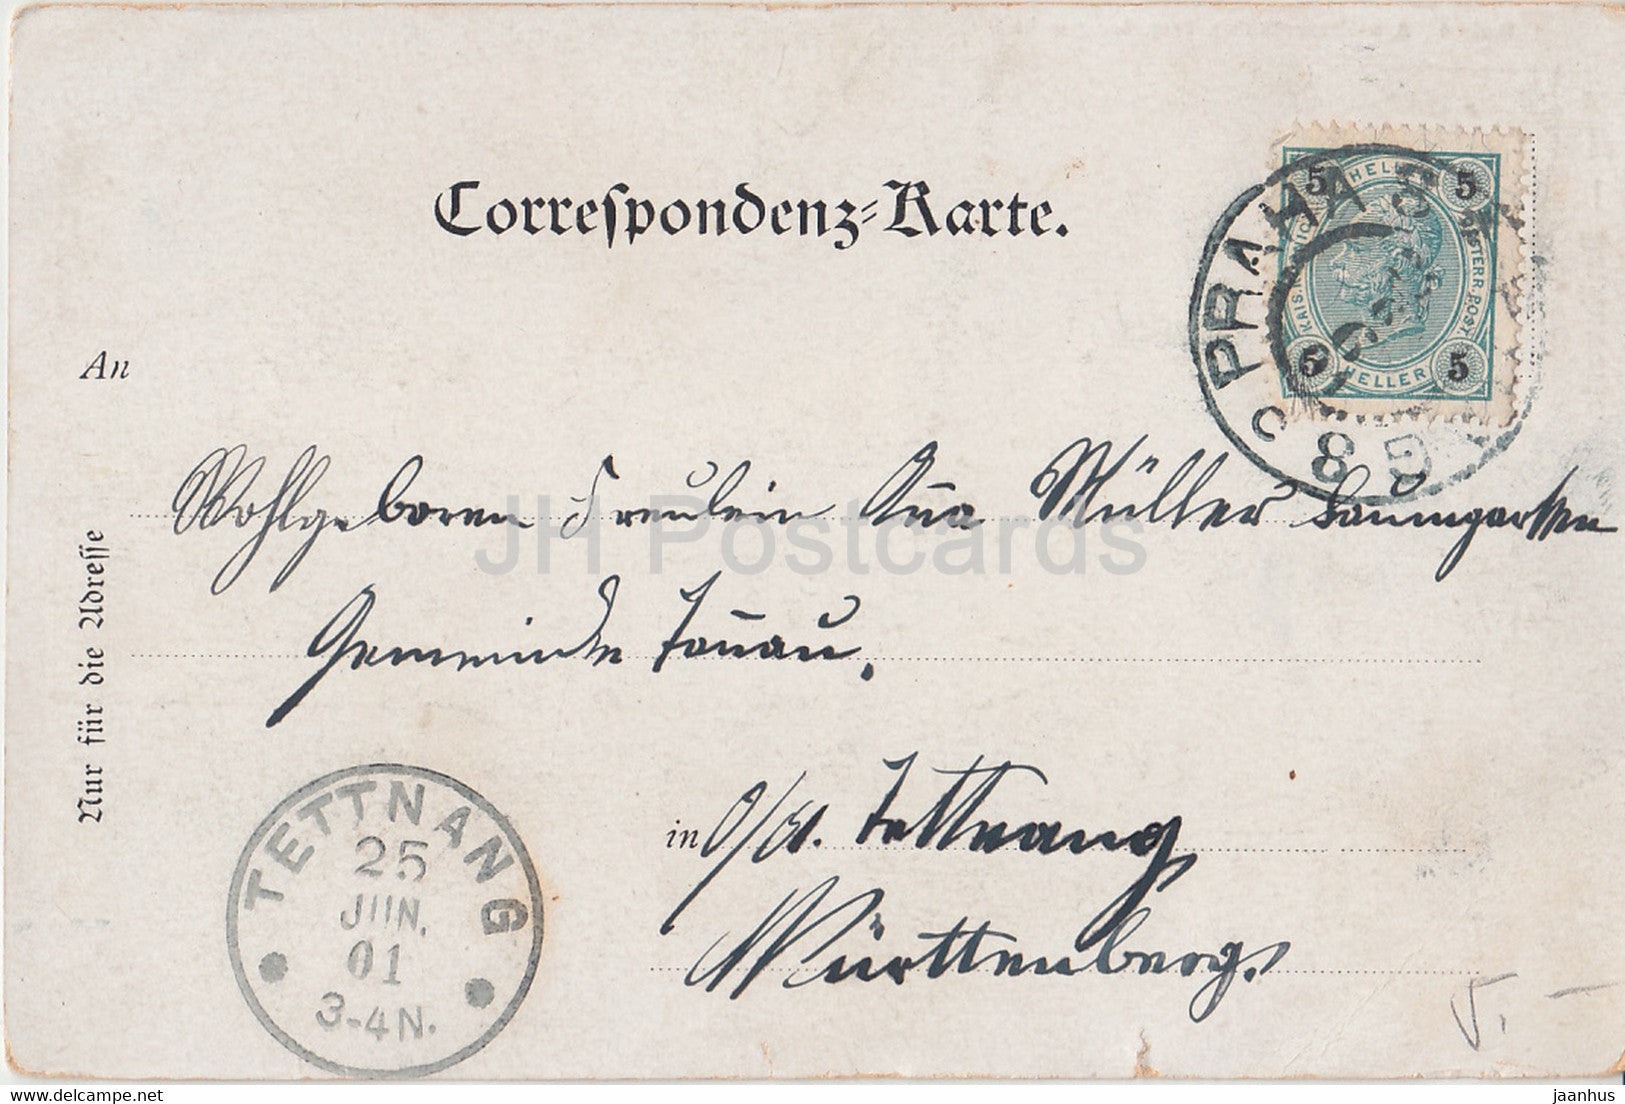 Correspondenz-Karte.
HELLER
5 5
KAIS. KÖNIGL. OESTERR. POST.
5 5
HELLER
PRAHA
8
An
Wohlgeboren Freulein Ana Müller Baumgarten
Gemeinde Tanau.
in O/A. Tettnang
Württenberg.
Nur für die Adresse
TETTNANG
25
JUN.
01
3-4N.
5.–
JH Postcards
delcampe.net
jaanhus